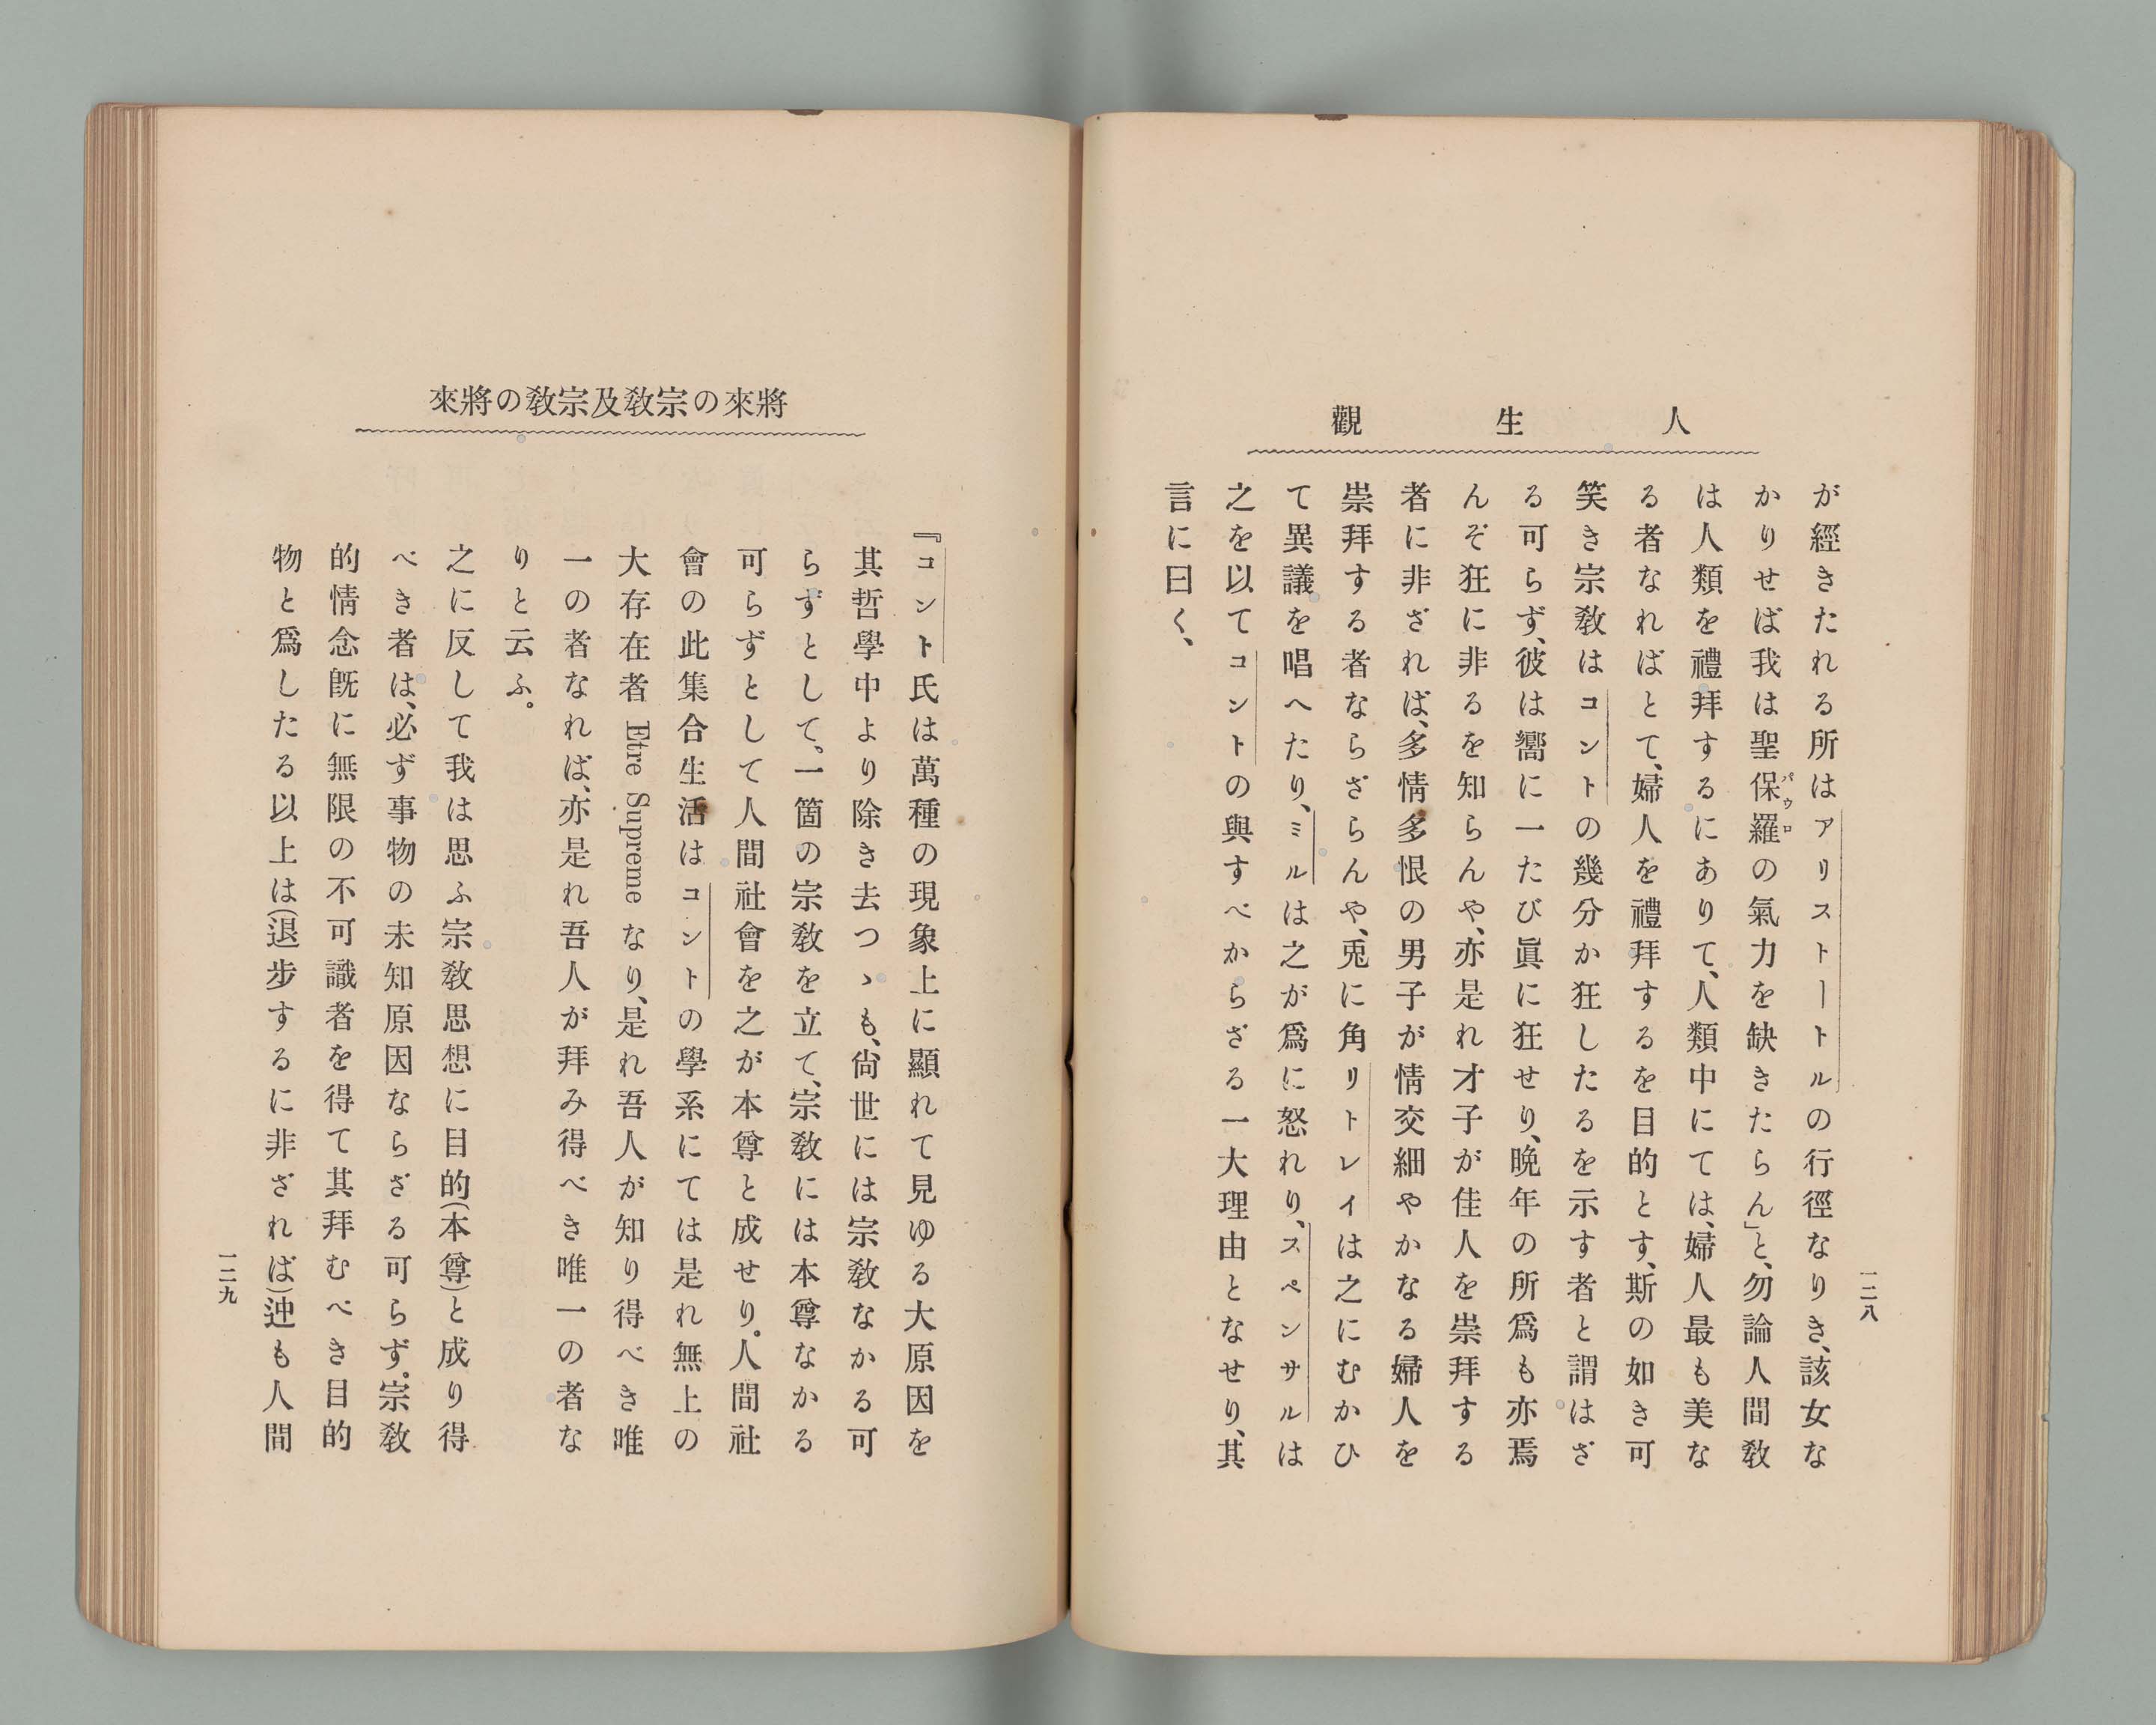 人生觀
一二八
が經きたれる所はアリストートルの行徑なりき、該女な
かりせば我は聖保羅の氣力を缺きたらん」と、勿論人間敎
パウロ
は人類を禮拜するにありて、人類中にては、婦人最も美な
る者なればとて、婦人を禮拜するを目的とす、斯の如き可
笑き宗敎はコントの幾分か狂したるを示す者と謂はざ
る可らず、彼は嚮に一たび眞に狂せり、晩年の所爲も亦焉
んぞ狂に非るを知らんや、亦是れ才子が佳人を崇拜する
者に非ざれば、多情多恨の男子が情交細やかなる婦人を
崇拜する者ならざらんや、兎に角リトレイは之にむかひ
て異議を唱へたり、ミルは之が爲に怒れり、スペンサルは
之を以てコントの與すべからざる一大理由となせり、其
言に曰く、
將來の宗敎及宗敎の將來
『コント氏は萬種の現象上に顯れて見ゆる大原因を
其哲學中より除き去つゝも、尙世には宗敎なかる可
らずとして、一箇の宗敎を立て、宗敎には本尊なかる
可らずとして人間社會を之が本尊と成せり。人間社
會の此集合生活はコントの學系にては是れ無上の
大存在者 Etre Supreme なり、是れ吾人が知り得べき唯
一の者なれば、亦是れ吾人が拜み得べき唯一の者な
りと云ふ。
之に反して我は思ふ宗敎思想に目的(本尊)と成り得
べき者は、必ず事物の未知原因ならざる可らず。宗敎
的情念旣に無限の不可識者を得て其拜むべき目的
物と爲したる以上は(退步するに非ざれば)迚も人間
一二九